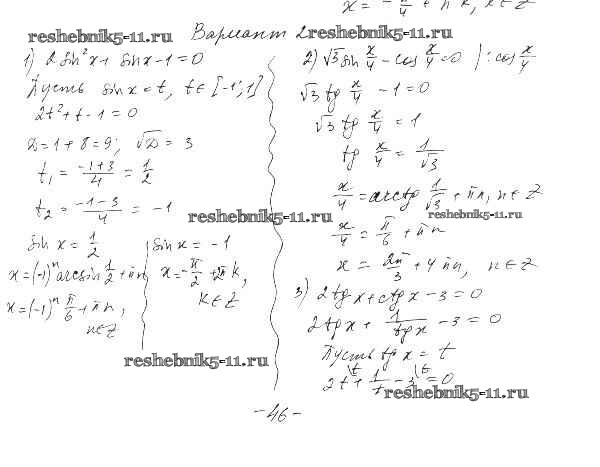 x = -π/4 + πk, k∈Z
reshebnik5-11.ru
Вариант 2
reshebnik5-11.ru
1) 2 sin²x + sin x - 1 = 0
Пусть sin x = t, t∈[-1; 1]
2t² + t - 1 = 0
D = 1 + 8 = 9; √D = 3
t₁ = (-1+3)/4 = 1/2
t₂ = (-1-3)/4 = -1
sin x = 1/2
x = (-1)ⁿ arcsin 1/2 + πn
x = (-1)ⁿ π/6 + πn,
n∈Z
sin x = -1
x = -π/2 + 2πk,
k∈Z
reshebnik5-11.ru
2) √3 sin x/4 - cos x/4 = 0 | : cos x/4
√3 tg x/4 - 1 = 0
√3 tg x/4 = 1
tg x/4 = 1/√3
x/4 = arctg 1/√3 + πn, n∈Z
reshebnik5-11.ru
reshebnik5-11.ru
x/4 = π/6 + πn
x = 2π/3 + 4πn, n∈Z
3) 2 tg x + ctg x - 3 = 0
2 tg x + 1/tg x - 3 = 0
Пусть tg x = t
2t + 1/t - 3 = 0
reshebnik5-11.ru
- 46 -